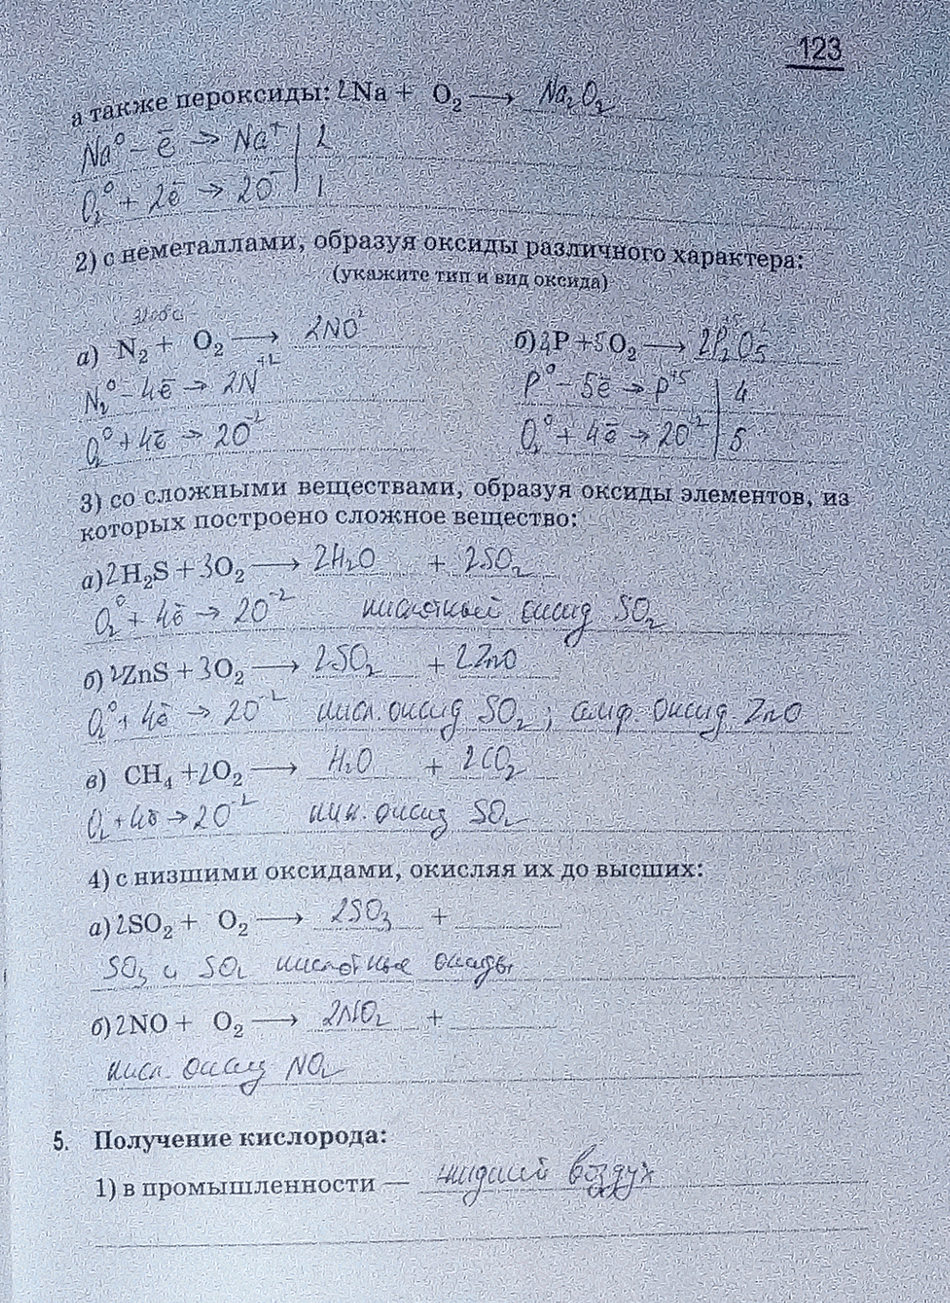 123
а также пероксиды: 2Na + O₂ ⟶ Na₂O₂
Na⁰ – ē → Na⁺ | 2
O₂⁰ + 2ē → 2O⁻ | 1
2) с неметаллами, образуя оксиды различного характера:
(укажите тип и вид оксида)
а) N₂ + O₂ ⟶ 2NO⁻²
N₂⁰ – 4ē → 2N⁺²
O₂⁰ + 4ē → 2O⁻²
б) 4P + 5O₂ ⟶ 2P₂O₅
P⁰ – 5ē → P⁺⁵ | 4
O₂⁰ + 4ē → 2O⁻² | 5
3) со сложными веществами, образуя оксиды элементов, из
которых построено сложное вещество:
а) 2H₂S + 3O₂ ⟶ 2H₂O + 2SO₂
O₂⁰ + 4ē → 2O⁻² кислотный оксид SO₂
б) 2ZnS + 3O₂ ⟶ 2SO₂ + 2ZnO
O₂⁰ + 4ē → 2O⁻² кисл. оксид SO₂; амф. оксид ZnO
в) CH₄ + 2O₂ ⟶ H₂O + 2CO₂
O₂ + 4ē → 2O⁻² кис. оксид SO₂
4) с низшими оксидами, окисляя их до высших:
а) 2SO₂ + O₂ ⟶ 2SO₃ +
SO₃ и SO₂ кислотные оксиды
б) 2NO + O₂ ⟶ 2NO₂ +
кисл. оксид NO₂
5. Получение кислорода:
1) в промышленности — жидкий воздух